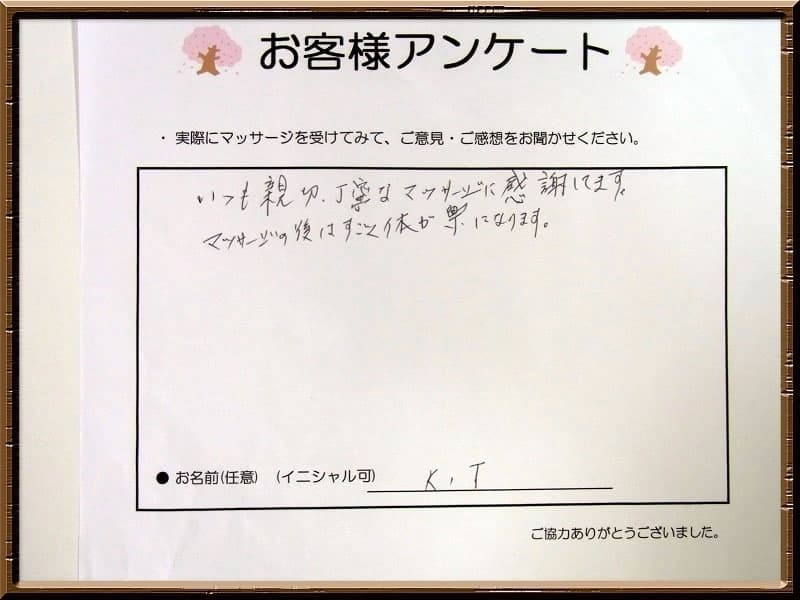 お客様アンケート
・ 実際にマッサージを受けてみて、ご意見・ご感想をお聞かせください。
いつも親切、丁寧なマッサージに感謝してます。
マッサージの後はすごく体が楽になります。
● お名前(任意) (イニシャル可) K.T
ご協力ありがとうございました。